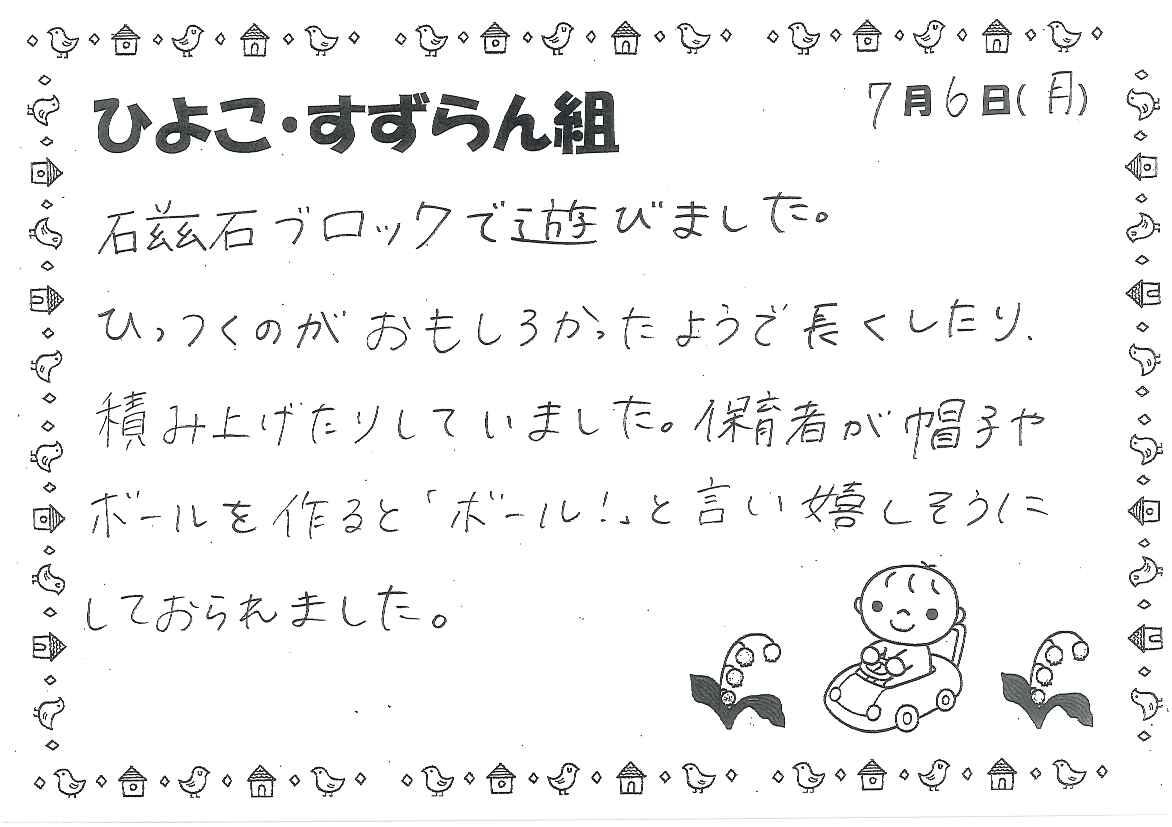 ひよこ・すずらん組
7月6日(月)
磁石ブロックで遊びました。
ひっつくのがおもしろかったようで長くしたり、
積み上げたりしていました。保育者が帽子や
ボールを作ると「ボール!」と言い嬉しそうに
しておられました。